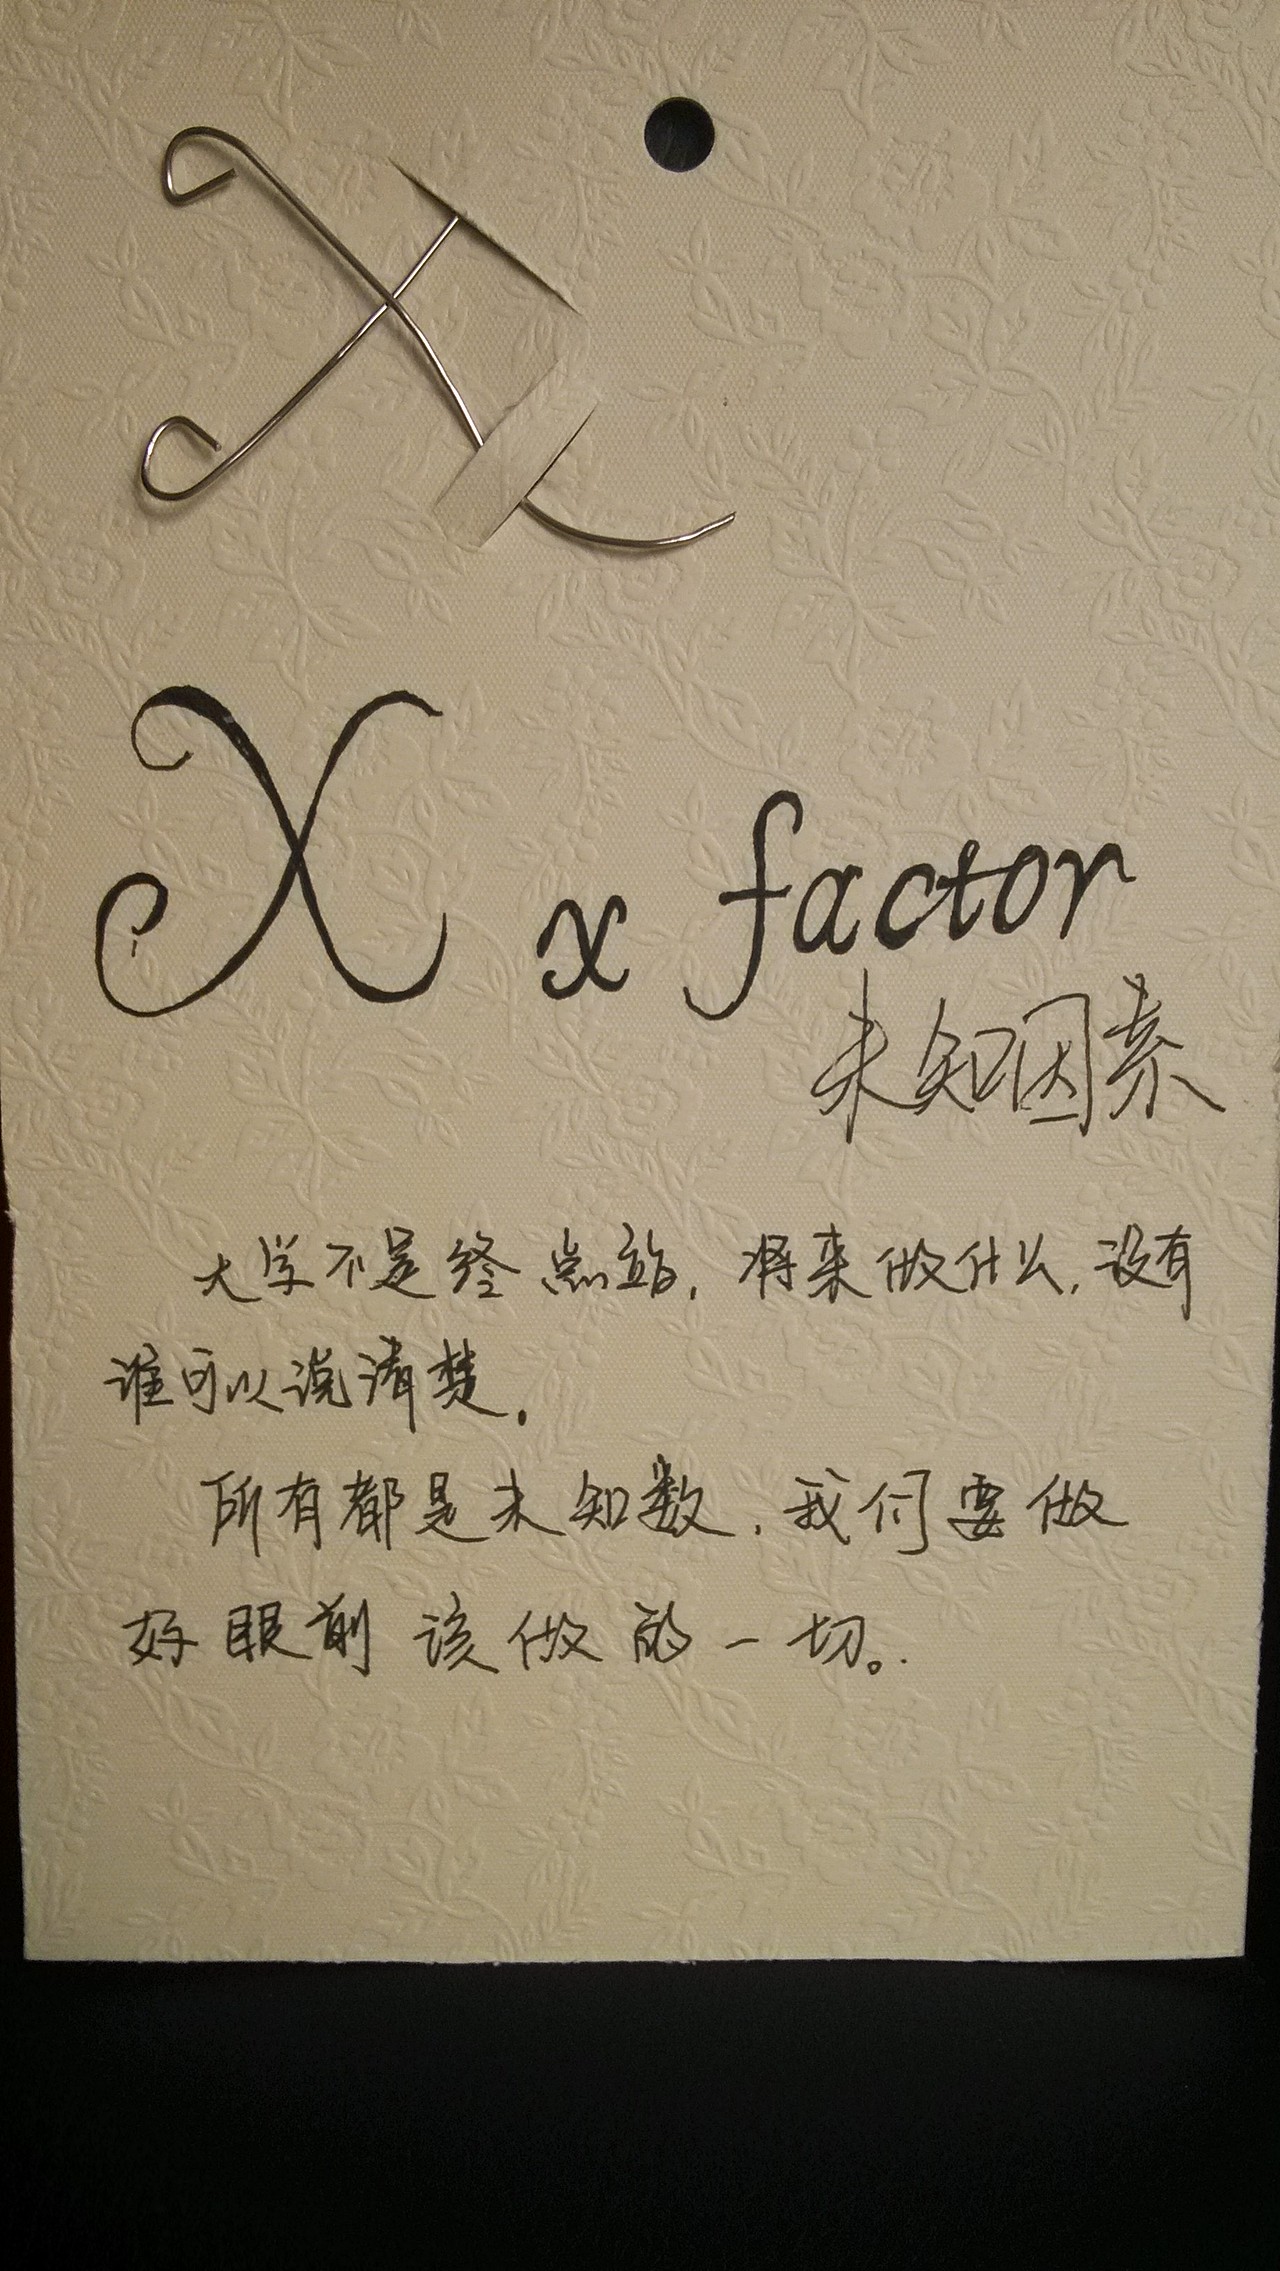 X x factor
未知因素
大学不是终点站,将来做什么,没有
谁可以说清楚.
所有都是未知数,我们要做
好眼前该做的一切。